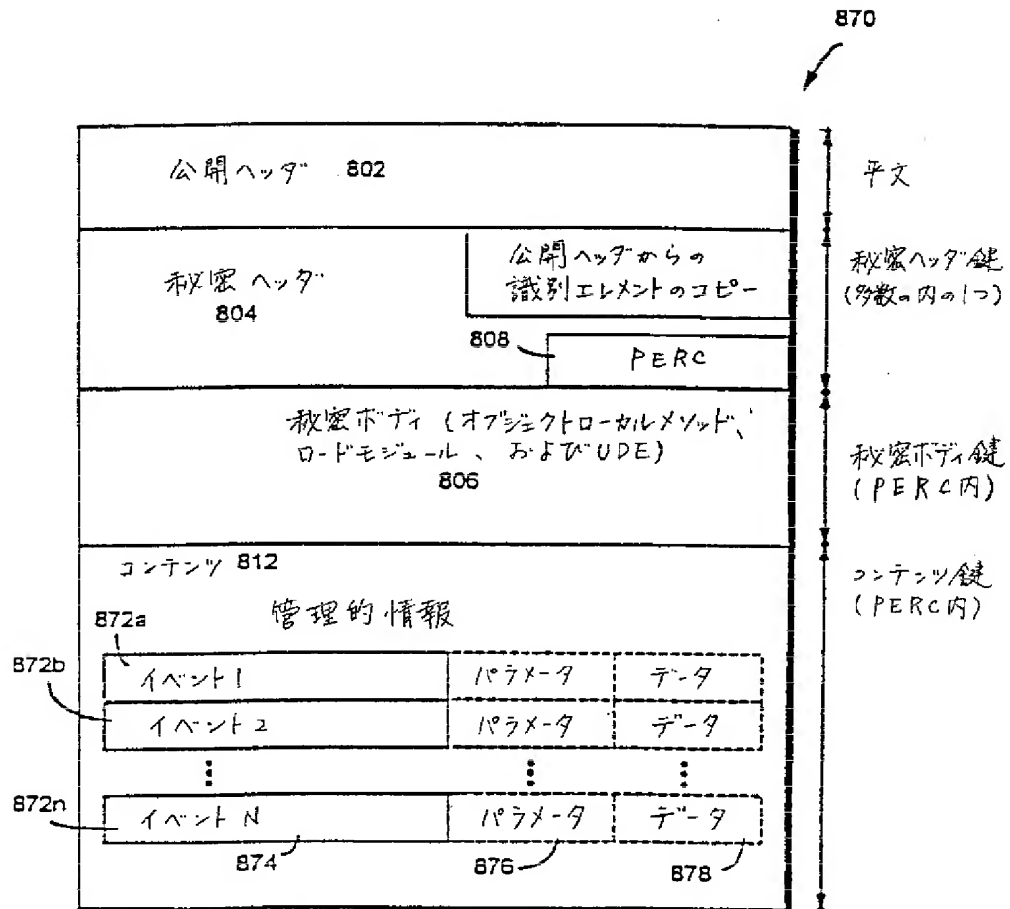 870
公開ヘッダ 802
平文
秘密ヘッダ
804
公開ヘッダからの
識別エレメントのコピー
808
PERC
秘密ヘッダ鍵
(多数の内の1つ)
秘密ボディ (オブジェクトローカルメソッド、
ロードモジュール、およびUDE)
806
秘密ボディ鍵
(PERC内)
コンテンツ 812
管理的情報
コンテンツ鍵
(PERC内)
872a
872b
イベント1 パラメータ データ
イベント2 パラメータ データ
872n
イベントN パラメータ データ
874
876
878